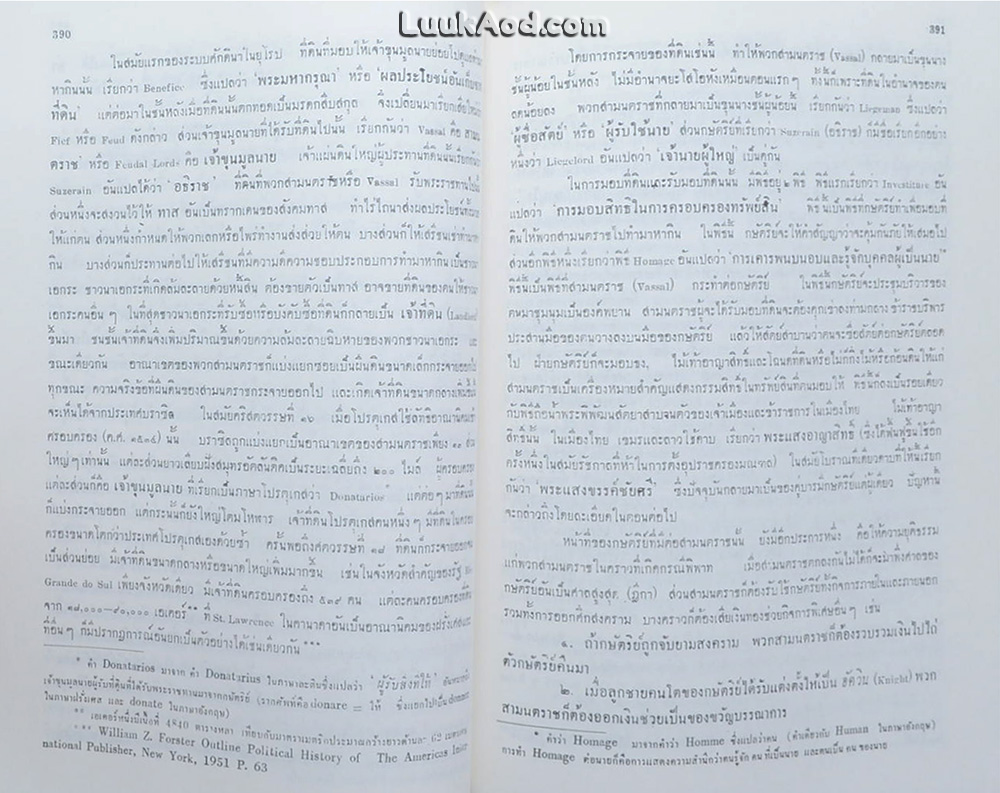 LuukAod.com
390
ในสมัยแรกของระบบศักดินาในยุโรป ที่ดินที่มอบให้เจ้าขุนมูลนายย่อยไป
หากินนั้น เรียกว่า Benefice ซึ่งแปลว่า 'พระมหากรุณา' หรือ 'ผลประโยชน์อันเกี่ยวแก่
ที่ดิน' แต่ต่อมาในชั้นหลังเมื่อที่ดินนั้นตกทอดเป็นมรดกสืบสกุล จึงเปลี่ยนมาเรียกเสียใหม่ว่า
Fief หรือ Feud ดังกล่าว ส่วนเจ้าขุนมูลนายที่ได้รับที่ดินไปนั้น เรียกกันว่า Vassal คือ สามน
ตราช หรือ Feudal Lords คือ เจ้าขุนมูลนาย เจ้าแผ่นดินใหญ่ผู้ประทานที่ดินนั้นเรียกกันว่า
Suzerain อันแปลได้ว่า 'อธิราช' ที่ดินที่พวกสามนตราชหรือ Vassal รับพระราชทานไปนั้น
ส่วนหนึ่งจะสงวนไว้ให้ ทาส อันเป็นทรากเดนของสังคมทาส ทำไร่ไถนาส่งผลประโยชน์ทั้งมวล
ให้แก่ตน ส่วนหนึ่งกำหนดให้พวกเลกหรือไพร่ทำงานส่งส่วยให้ตน บางส่วนก็ให้เสรีชนเช่าทำมาหา
กิน บางส่วนก็ประทานต่อไปให้เสรีชนที่มีความดีความชอบประกอบการทำมาหากินเป็นชาวนา
เอกระ ชาวนาเอกระที่เกิดล้มละลายด้วยหนี้สิน ต้องขายตัวเป็นทาส อาจขายที่ดินของตนให้ชาวนา
เอกระคนอื่นๆ ในที่สุดชาวนาเอกระที่รับซื้อหรือบังคับซื้อที่ดินก็กลายเป็น เจ้าที่ดิน (Landlord)
ขึ้นมา ชนชั้นเจ้าที่ดินจึงเพิ่มปริมาณขึ้นด้วยความล้มละลายฉิบหายของพวกชาวนาเอกระ และ
ขณะเดียวกัน อาณาเขตของพวกสามนตราชก็แบ่งแยกซอยเป็นผืนดินขนาดเล็กกระจายออกไป
ทุกขณะ ความจริงข้อที่ผืนดินของสามนตราชกระจายออกไป และเกิดเจ้าที่ดินขนาดกลางเพิ่มขึ้น
จะเห็นได้จากประเทศบราซิล ในสมัยคริสต์ศตวรรษที่ ๑๖ เมื่อโปรตุเกสใช้ลัทธิอาณานิคมเข้า
ครอบครอง (ค.ศ. ๑๕๓๔) นั้น บราซิลถูกแบ่งแยกเป็นอาณาเขตของสามนตราชเพียง ๑๓ ส่วน
ใหญ่ๆ เท่านั้น แต่ละส่วนยาวเลียบฝั่งสมุทรอัตลันติคเป็นระยะเฉลี่ยถึง ๒๐๐ ไมล์ ผู้ครอบครอง
แต่ละส่วนก็คือ เจ้าขุนมูลนาย ที่เรียกเป็นภาษาโปรตุเกสว่า Donatarios* แต่ต่อๆ มาที่ดินนั้น
ก็แบ่งกระจายออก แต่กระนั้นก็ยังใหญ่โตมโหฬาร เจ้าที่ดินโปรตุเกสคนหนึ่งๆ มีที่ดินในครอบ
ครองขนาดโตกว่าประเทศโปรตุเกสเองด้วยซ้ำ ครั้นพอถึงศตวรรษที่ ๑๘ ที่ดินก็กระจายออก
เป็นส่วนย่อย มีเจ้าที่ดินขนาดกลางหรือขนาดใหญ่เพิ่มมากขึ้น เช่นในจังหวัดสำคัญของรัฐ Rio
Grande do Sul เพียงจังหวัดเดียว มีเจ้าที่ดินครอบครองถึง ๕๓๙ คน แต่ละคนครอบครองที่ดิน
จาก ๑๘,๐๐๐–๙๐,๐๐๐ เอเคอร์** ที่ St. Lawrence ในคานาดาอันเป็นอาณานิคมของฝรั่งเศสและ
ที่อื่นๆ ก็มีปรากฏการณ์อันยกเป็นตัวอย่างได้เช่นเดียวกัน***
* คำ Donatarios มาจาก คำ Donatarius ในภาษาละตินซึ่งแปลว่า 'ผู้รับสิ่งที่ให้'
เจ้าขุนมูลนายผู้รับที่ดินที่ได้รับพระราชทานมาจากกษัตริย์ (รากศัพท์คือ donare = ให้ ซึ่งแยกไปเป็น donner
ในภาษาฝรั่งเศส และ donate ในภาษาอังกฤษ)
** เอเคอร์หนึ่งมีเนื้อที่ 4840 ตารางหลา เทียบกับมาตราเมตริกประมาณกว้างยาวด้านละ 62 เมตรเศษ
*** William Z. Forster Outline Political History of The Americas Inter
national Publisher, New York, 1951 P. 63
391
โดยการกระจายของที่ดินเช่นนี้ ทำให้พวกสามนตราช (Vassal) กลายมาเป็นขุนนาง
ชั้นผู้น้อยในชั้นหลัง ไม่มีอำนาจยะโสโอหังเหมือนตอนแรกๆ ทั้งนี้ก็เพราะที่ดินในอำนาจของตน
ลดน้อยลง พวกสามนตราชที่กลายมาเป็นขุนนางชั้นผู้น้อยนี้ เรียกกันว่า Liegeman ซึ่งแปลว่า
'ผู้ซื่อสัตย์' หรือ 'ผู้รับใช้นาย' ส่วนกษัตริย์ที่เรียกว่า Suzerain (อธิราช) ก็มีชื่อเรียกอีกอย่าง
หนึ่งว่า Liegelord อันแปลว่า 'เจ้านายผู้ใหญ่' เป็นคู่กัน
ในการมอบที่ดินและรับมอบที่ดินนั้น มีพิธีอยู่ ๒ พิธี พิธีแรกเรียกว่า Investiture อัน
แปลว่า 'การมอบสิทธิในการครอบครองทรัพย์สิน' พิธีนี้เป็นพิธีที่กษัตริย์ทำเพื่อมอบที่
ดินให้พวกสามนตราชไปทำมาหากิน ในพิธีนี้ กษัตริย์จะให้คำสัญญาว่าจะคุ้มกันภัยให้เสมอไป
ส่วนอีกพิธีหนึ่งเรียกว่าพิธี Homage อันแปลว่า 'การเคารพนบนอบและรู้จักบุคคลผู้เป็นนาย'*
พิธีนี้เป็นพิธีที่สามนตราช (Vassal) กระทำต่อกษัตริย์ ในพิธีนี้กษัตริย์จะประชุมบริวารของ
ตนมาชุมนุมเป็นองค์พยาน สามนตราชผู้จะได้รับมอบที่ดินจะต้องคุกเข่าลงท่ามกลางข้าราชบริพาร
ประสานมือของตนวางลงบนมือของกษัตริย์ แล้วให้สัตย์สาบานว่าตนจะซื่อสัตย์ต่อกษัตริย์ตลอด
ไป ฝ่ายกษัตริย์ก็จะมอบธง, ไม้เท้าอาญาสิทธิ์และโฉนดที่ดินหรือไม่ก็กิ่งไม้หรือก้อนดินให้แก่
สามนตราชเป็นเครื่องหมายสำคัญแสดงกรรมสิทธิ์ในทรัพย์สินที่ตนมอบให้ พิธีนี้ก็ลงเป็นรอยเดียว
กับพิธีถือน้ำพระพิพัฒน์สัตยาสาบจนตัวของเจ้าเมืองและข้าราชการในเมืองไทย ไม้เท้าอาญา
สิทธิ์นั้น ในเมืองไทย เขมรและลาวใช้ดาบ เรียกว่า พระแสงอาญาสิทธิ์ (ซึ่งได้ฟื้นฟูขึ้นใช้อีก
ครั้งหนึ่งในสมัยรัชกาลที่ห้าในการตั้งอุปราชครองมณฑล) ในสมัยโบราณทีเดียวดาบที่ให้นี้เรียก
กันว่า 'พระแสงขรรค์ชัยศรี' ซึ่งปัจจุบันกลายมาเป็นของคู่บารมีกษัตริย์แต่ผู้เดียว ปัญหานี้
จะกล่าวถึงโดยละเอียดในตอนต่อไป
หน้าที่ของกษัตริย์ที่มีต่อสามนตราชนั้น ยังมีอีกประการหนึ่ง คือให้ความยุติธรรม
แก่พวกสามนตราชในคราวที่เกิดกรณีพิพาท เมื่อสามนตราชตกลงกันไม่ได้ก็จะมาพึ่งศาลของ
กษัตริย์อันเป็นศาลสูงสุด (ฎีกา) ส่วนสามนตราชก็ต้องรับใช้กษัตริย์ทั้งกิจการภายในและภายนอก
รวมทั้งการออกศึกสงคราม บางคราวก็ต้องเสียเงินทองช่วยกิจการพิเศษอื่นๆ เช่น
๑. ถ้ากษัตริย์ถูกจับยามสงคราม พวกสามนตราชก็ต้องรวบรวมเงินไปไถ่
ตัวกษัตริย์คืนมา
๒. เมื่อลูกชายคนโตของกษัตริย์ได้รับแต่งตั้งให้เป็น อัศวิน (Knight) พวก
สามนตราชก็ต้องออกเงินช่วยเป็นของขวัญบรรณาการ
* คำว่า Homage มาจากคำว่า Homme ซึ่งแปลว่าคน (คำเดียวกับ Human ในภาษาอังกฤษ)
การทำ Homage ต่อนายก็คือการแสดงความสำนึกว่าตนรู้จักคนที่เป็นนาย และตนเป็น คน ของนาย